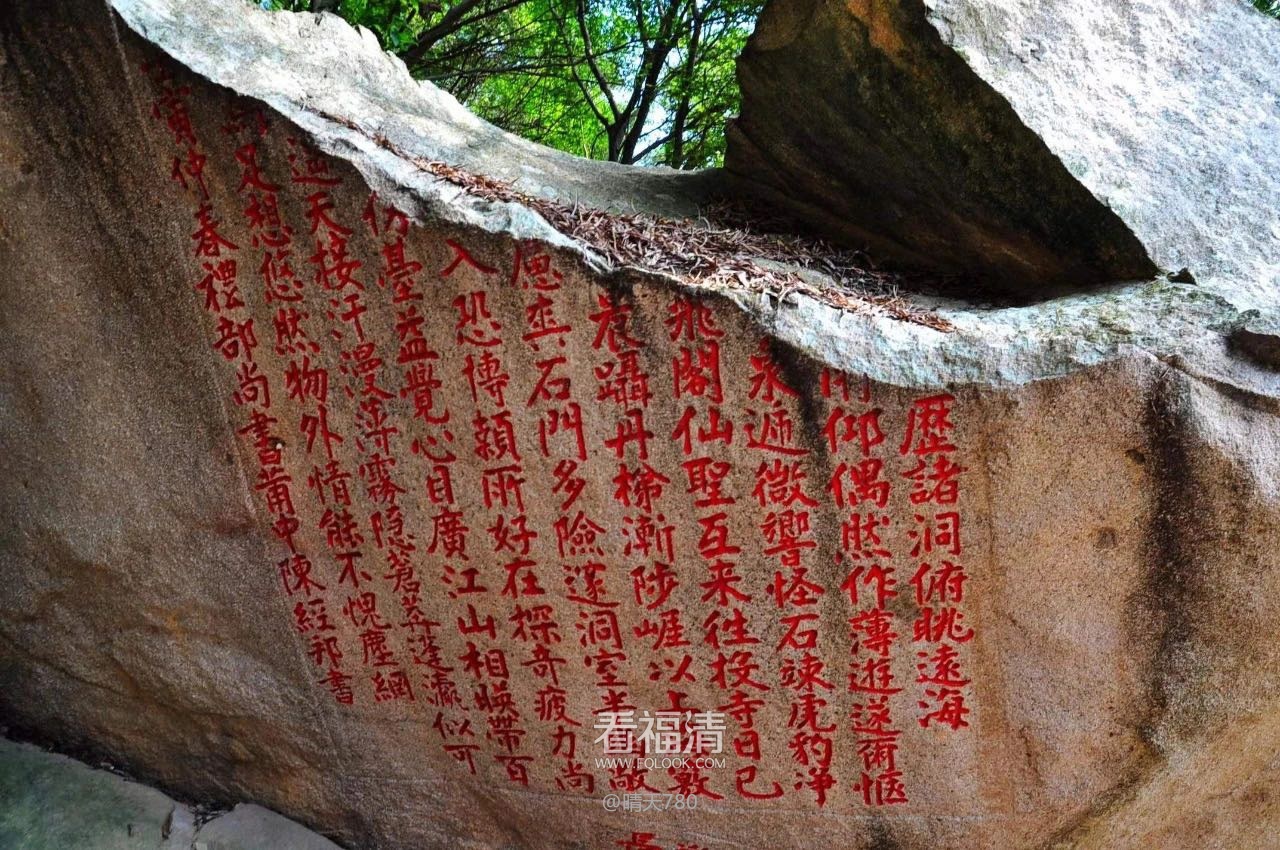 歷諸洞俯眺遠海
仰偶然作薄遊遂爾愜
泉遞微響怪石竦虎豹淨
飛閣仙聖互来往投寺日已
晨躡丹梯漸陟崖以上數
石門多險邃洞室半敞
入恐傳所好在探奇疲力尚
仍臺益覺心目廣江山相暎帶百
天接汗漫薄霧隱若蓬瀛似可
足想悠然物外情能不愧塵網
仲春禮部尚書莆中陳經邦書
看福清
WWW.FQLOOK.COM
@晴天780